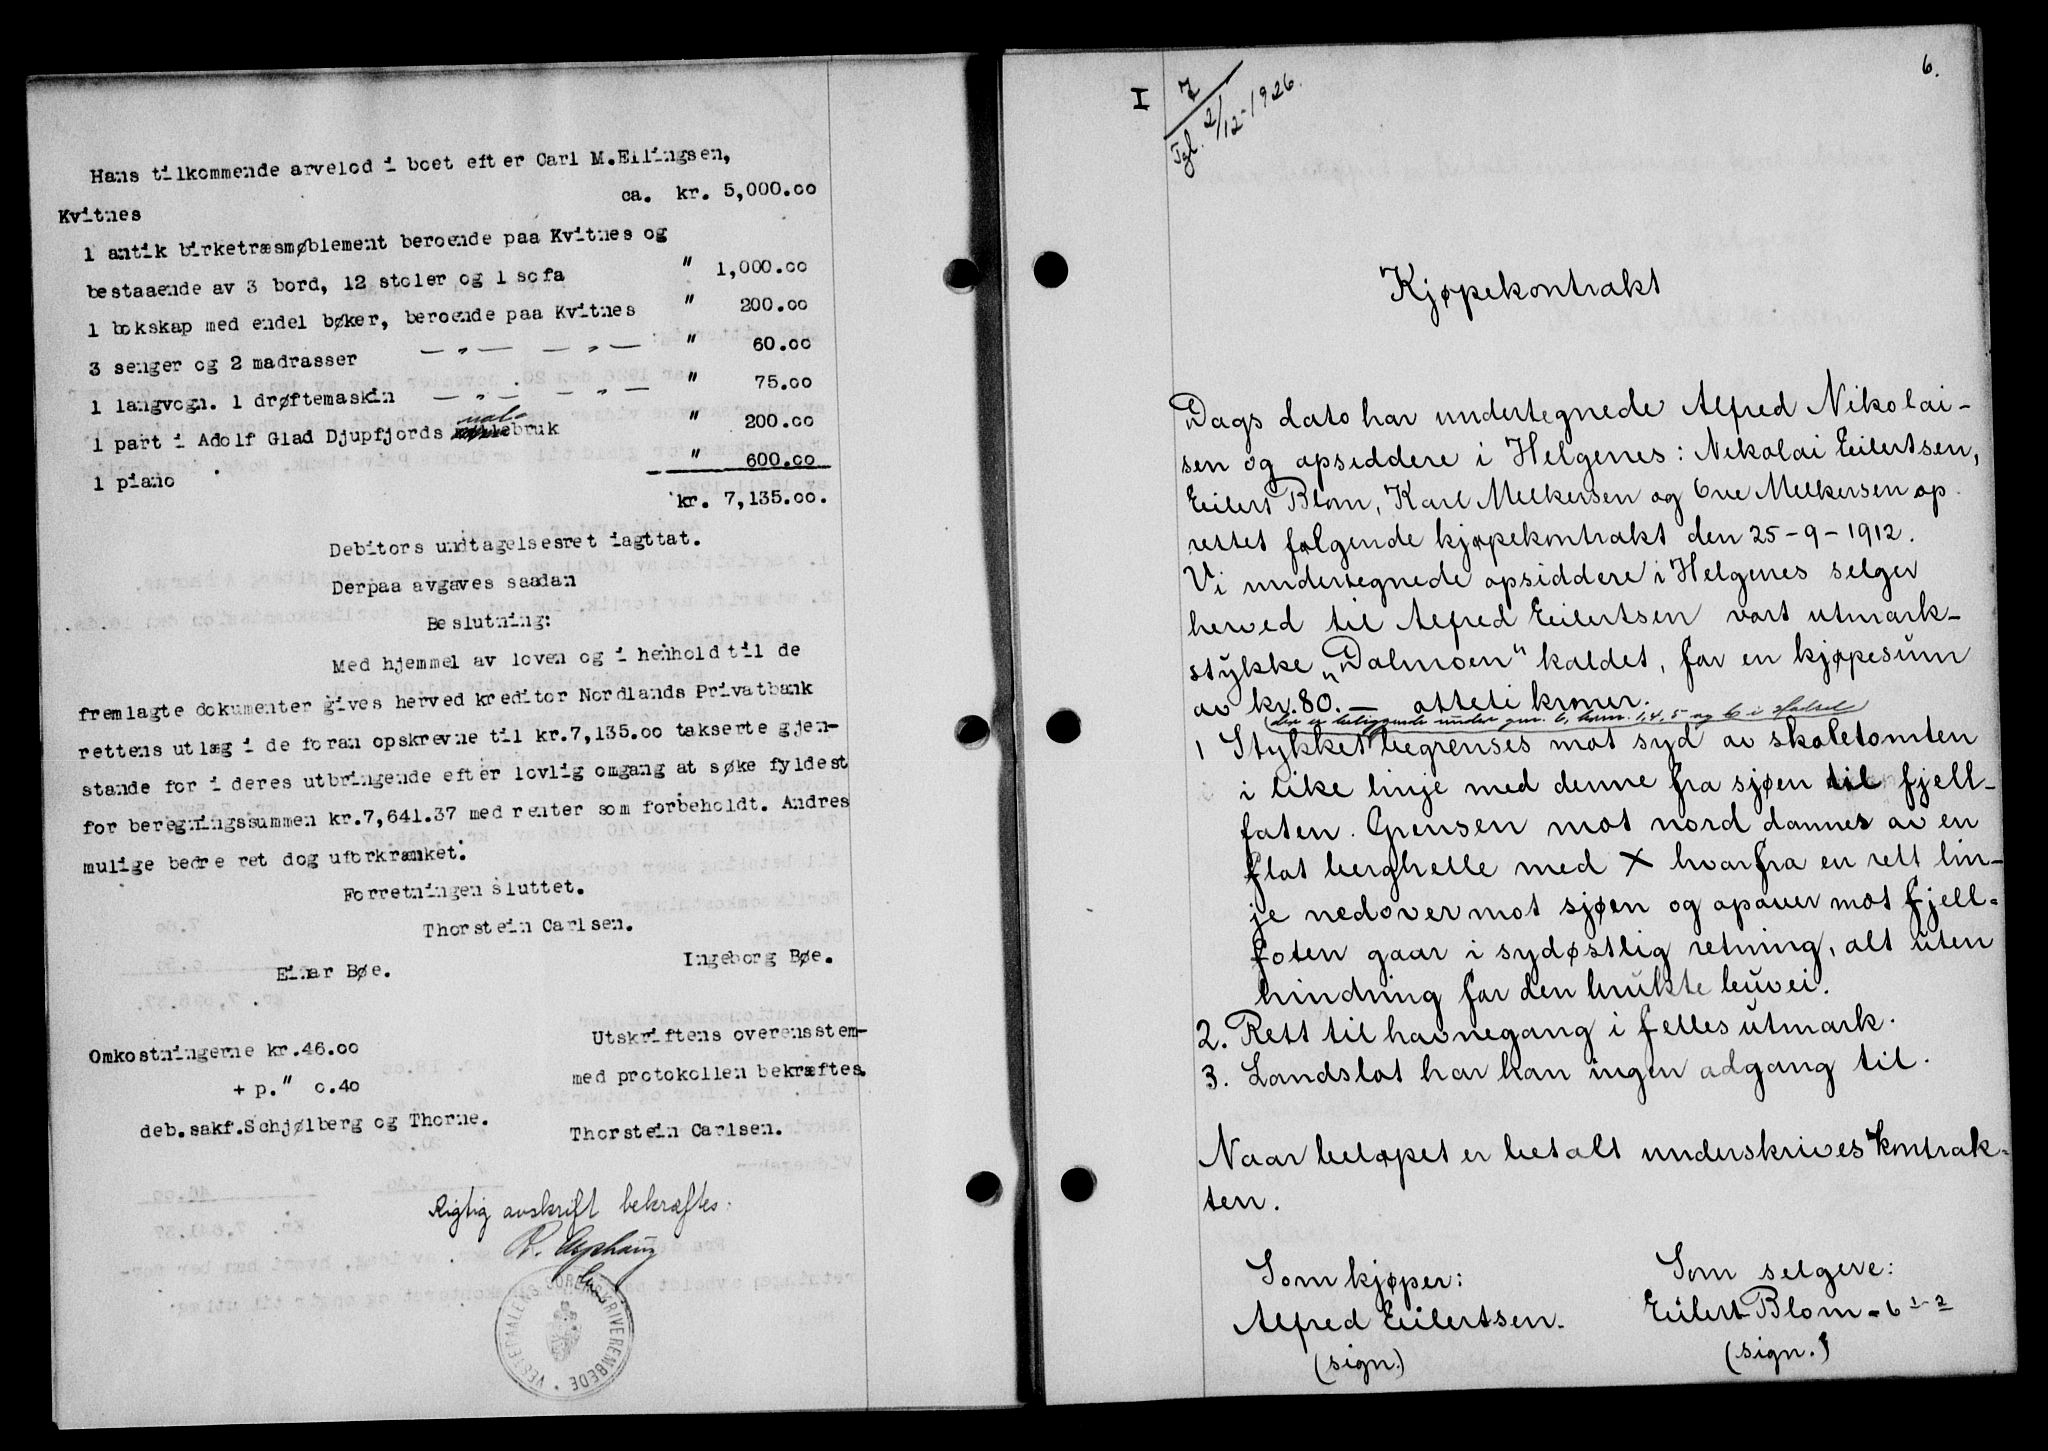 Hans tilkommende arvelod i boet efter Carl M. Ellingsen,
Kvitnes ca. kr. 5,000.00
1 antik birketræsmøblement beroende paa Kvitnes og
bestaaende av 3 bord, 12 stoler og 1 sofa " 1,000.00
1 bokskap med endel bøker, beroende paa Kvitnes " 200.00
3 senger og 2 madrasser — " — — " — " 60.00
1 langvogn. 1 drøftemaskin — " — — " — " 75.00
1 part i Adolf Glad Djupfjords bruk " 200.00
1 piano " 600.00
kr. 7,135.00.
Debitors undtagelsesret iagttat.
Derpaa avgaves saadan
Beslutning:
Med hjemmel av loven og i henhold til de
fremlagte dokumenter gives herved kreditor Nordlands Privatbank
rettens utlæg i de foran opskrevne til kr.7,135.00 takserte gjen-
stande for i deres utbringende efter lovlig omgang at søke fyldest
for beregningssummen kr.7,641.37 med renter som forbeholdt. Andres
mulige bedre ret dog uforkrænket.
Forretningen sluttet.
Thorstein Carlsen.
Einar Bøe. Ingeborg Bøe.
Omkostningerne kr.46.00
+ p. " 0.40
deb.sakf.Schjølberg og Thorne.
Utskriftens overensstem-
med protokollen bekræftes.
Thorstein Carlsen.
Rigtig avskrift bekræftes:
VESTERAALEN SORENSKRIVEREMBEDE
6.
I 7
Tgl. 2/12-1926.
Kjøpekontrakt
Dags dato har undertegnede Alfred Nikolai-
sen og opsiddere i Helgenes: Nikolai Eilertsen,
Eilert Blom, Karl Melkersen og Ove Melkersen op
rettet følgende kjøpekontrakt den 25-9-1912.
Vi undertegnede opsiddere i Helgenes selger
herved til Alfred Eilertsen vort utmark-
stykke „Dalmoen" kaldet, for en kjøpesum
av kr. 80.— otteti kroner.
(der er beliggende under gnr. 6, brnr. 1,4,5 og 6 i
1 Stykket begrenses mot syd av skoletomten
i like linje med denne fra sjøen til fjell-
foten. Grensen mot nord dannes av en
flat berghelle med X hvorfra en rett lin-
je nedover mot sjøen og opover mot fjell-
foten gaar i sydøstlig retning, alt uten
hindring for den brukte buvei.
2. Rett til havnegang i felles utmark.
3. Landslot har han ingen adgang til.
Naar beløpet er betalt underskrives kontrak-
ten.
Som kjøper: Som selgere:
Alfred Eilertsen. Eilert Blom - 6 1-2
(sign.) (sign.)